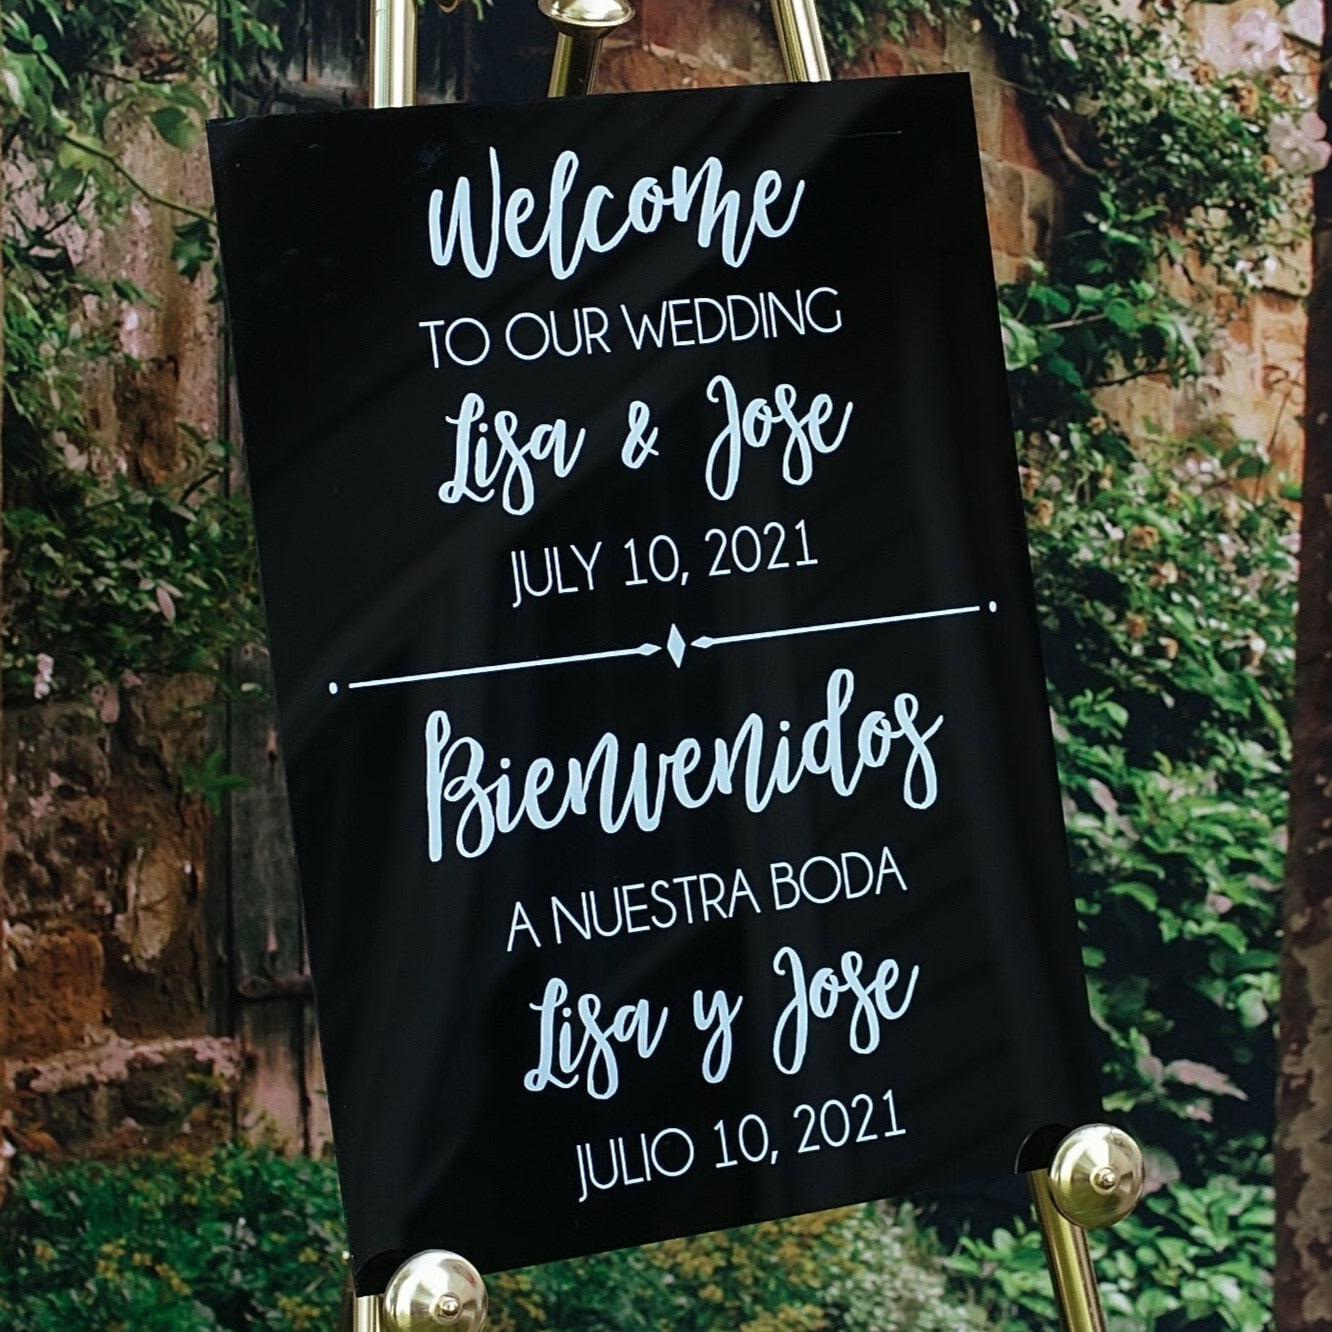 Welcome
TO OUR WEDDING
Lisa & Jose
JULY 10, 2021
Bienvenidos
A NUESTRA BODA
Lisa y Jose
JULIO 10, 2021